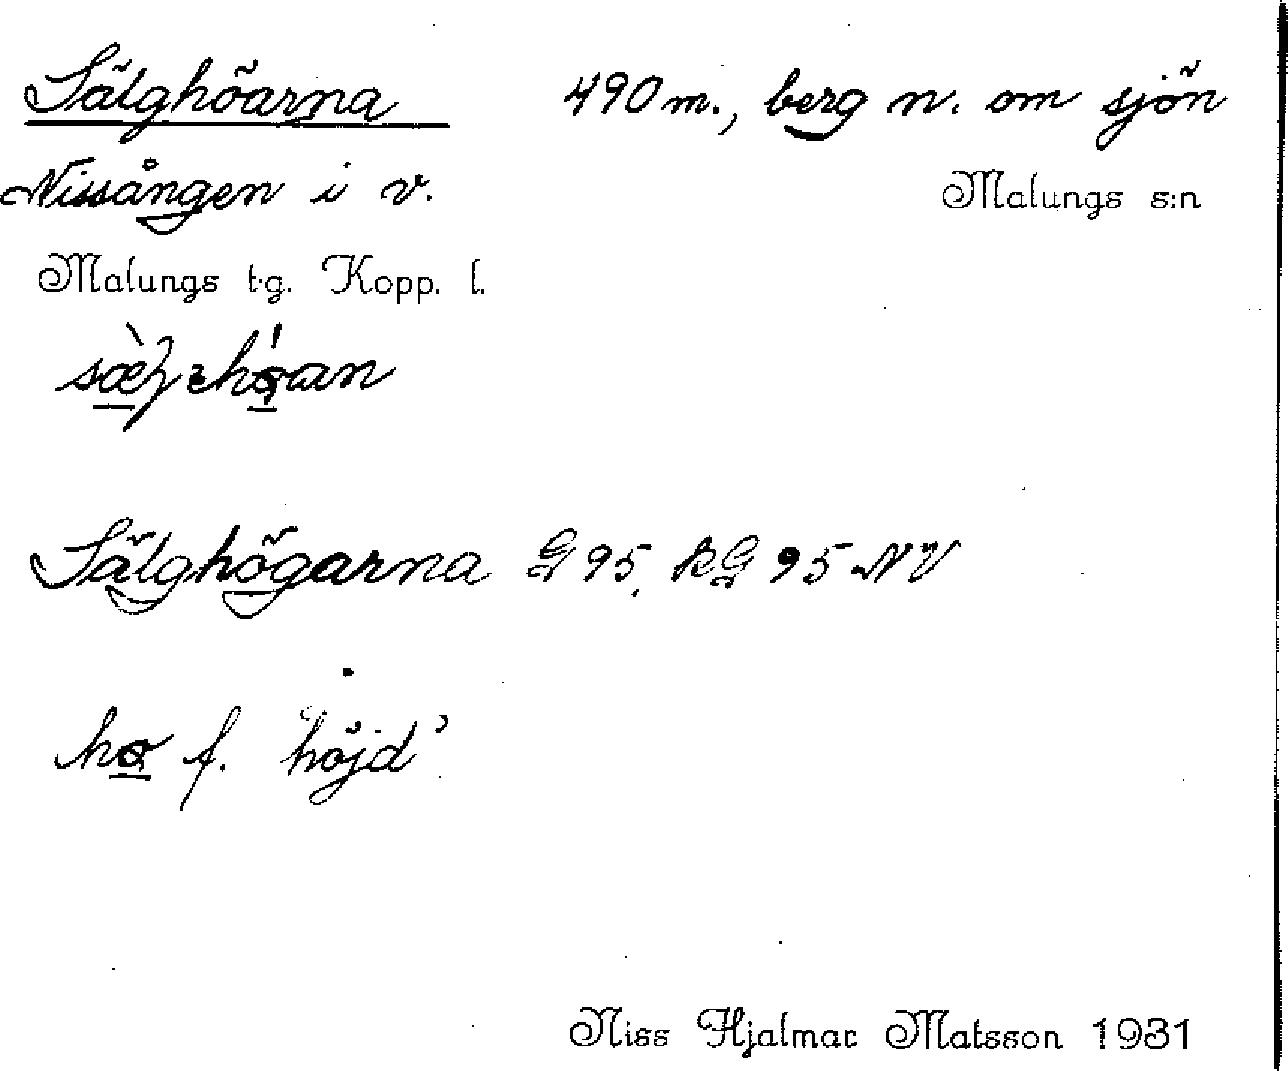 Sälghöarna 490 m., berg n. om sjön
Nissängen i v. Malungs s:n
Malungs t.g. Kopp. l.
Sälghögarna G 95, RG 95 NV
hø f. 'höjd'
Niss Hjalmar Matsson 1931